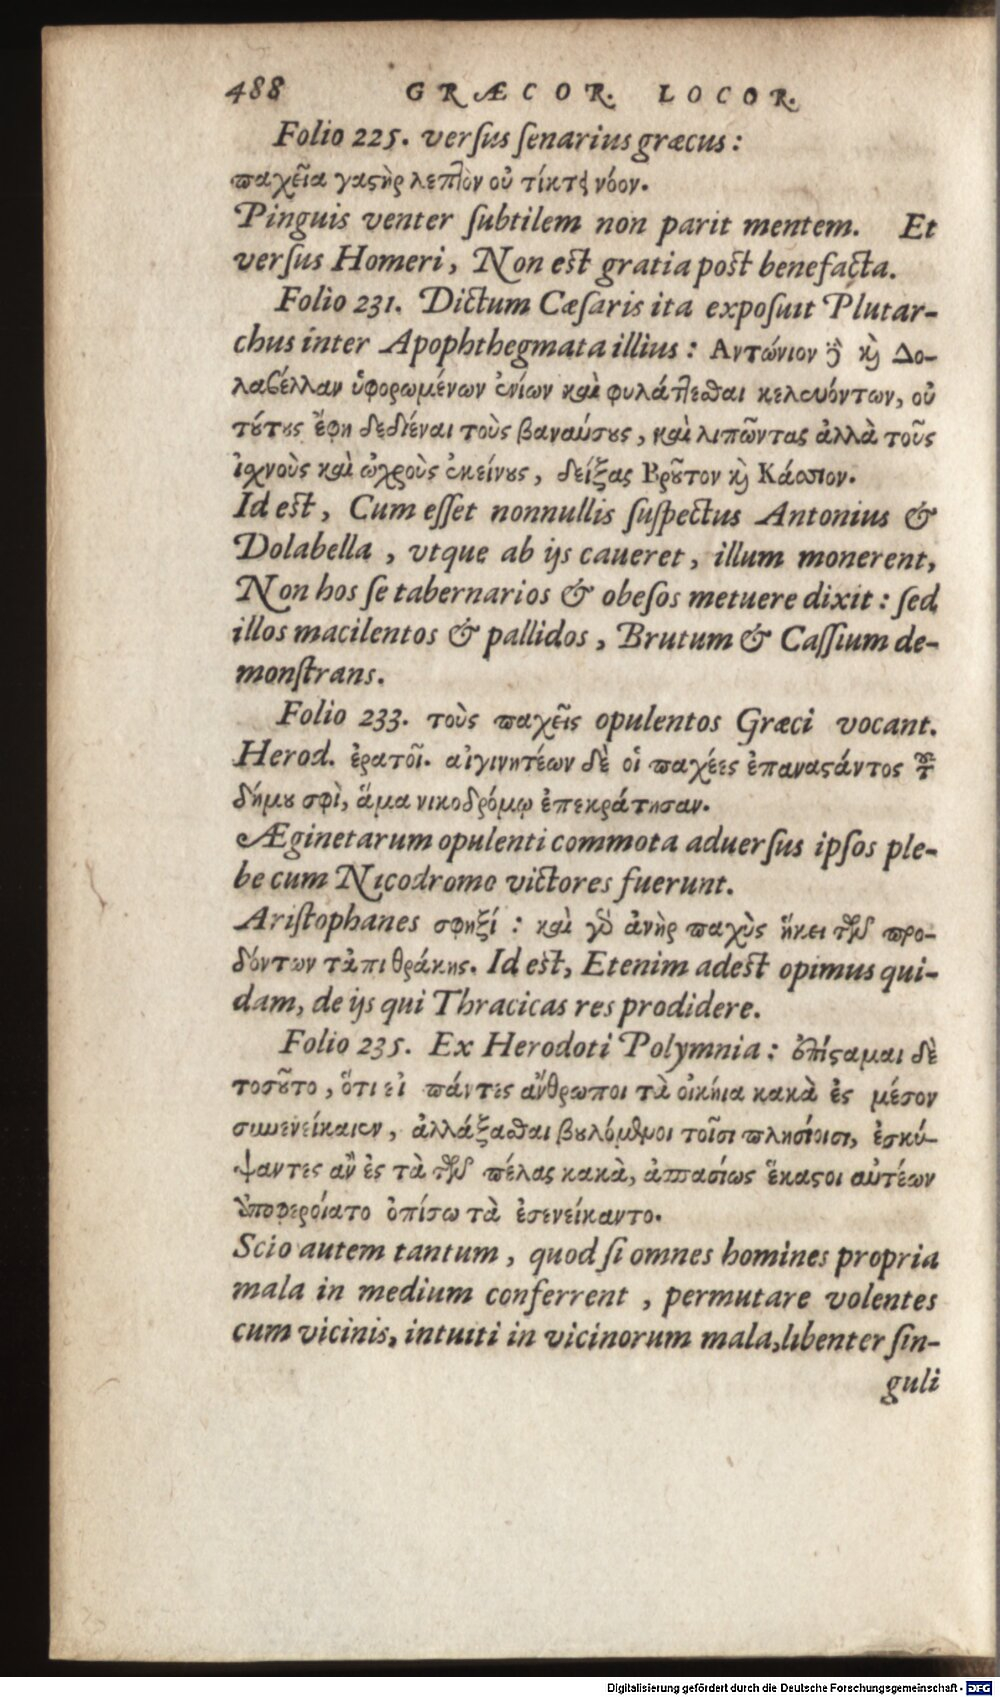 488 GRÆCOR. LOCOR.
Folio 225. verſus ſenarius græcus:
παχεῖα γαϛὴρ λεπτὸν οὐ τίκτει νόον.
Pinguis venter ſubtilem non parit mentem. Et
verſus Homeri, Non est gratia post benefacta.
Folio 231. Dictum Cæſaris ita exposuit Plutar-
chus inter Apophthegmata illius: Αντώνιον ȣ̃ καὶ Δο-
λαβέλλαν ὑφορωμένων ἐνίων καὶ φυλάττεσθαι κελευόντων, οὐ
τύτυς ἔφη δεδιέναι τοὺς βαναύσυς, καὶ λιπῶντας ἀλλὰ τοῦς
ἰχνοὺς καὶ ὠχροὺς ἐκείνȣς, δείξας Βρȣ̃τον καὶ Κάσσιον.
Id est, Cum eſſet nonnullis ſuſpectus Antonius &
Dolabella, vtque ab ijs caueret, illum monerent,
Non hos ſe tabernarios & obeſos metuere dixit: ſed
illos macilentos & pallidos, Brutum & Caſſium de-
monſtrans.
Folio 233. τοὺς παχεῖς opulentos Græci vocant.
Herod. ἐρατοῖ. αἰγινητέων δὲ οἱ παχέες ἐπαναϛάντος τȣ̃
δήμȣ σφὶ, ἅμα νικοδρόμῳ ἐπεκράτησαν.
Æginetarum opulenti commota aduerſus ipſos ple-
be cum Nicodromo victores fuerunt.
Ariſtophanes σφηξί: καὶ γὸ ἀνὴρ παχὺς ἥκει τῶν προ-
δόντων τἀπὶ θράκης. Id est, Etenim adest opimus qui-
dam, de ijs qui Thracicas res prodidere.
Folio 235. Ex Herodoti Polymnia: ἐπίϛαμαι δὲ
τοσȣ̃το, ὅτι εἰ πάντες ἄνθρωποι τὰ οἰκήια κακὰ ἐς μέσον
συνενείκαιεν, ἀλλάξασθαι βȣλόμενοι τοῖσι πλησίοισι, ἐσκύ-
ψαντες ἂν ἐς τὰ τῶν πέλας κακὰ, ἀσπασίως ἕκαϛοι αὐτέων
ὑποφεροίατο ὀπίσω τὰ ἐσενείκαντο.
Scio autem tantum, quod ſi omnes homines propria
mala in medium conferrent, permutare volentes
cum vicinis, intuiti in vicinorum mala, libenter ſin-
guli
Digitalisierung gefördert durch die Deutsche Forschungsgemeinschaft - DFG